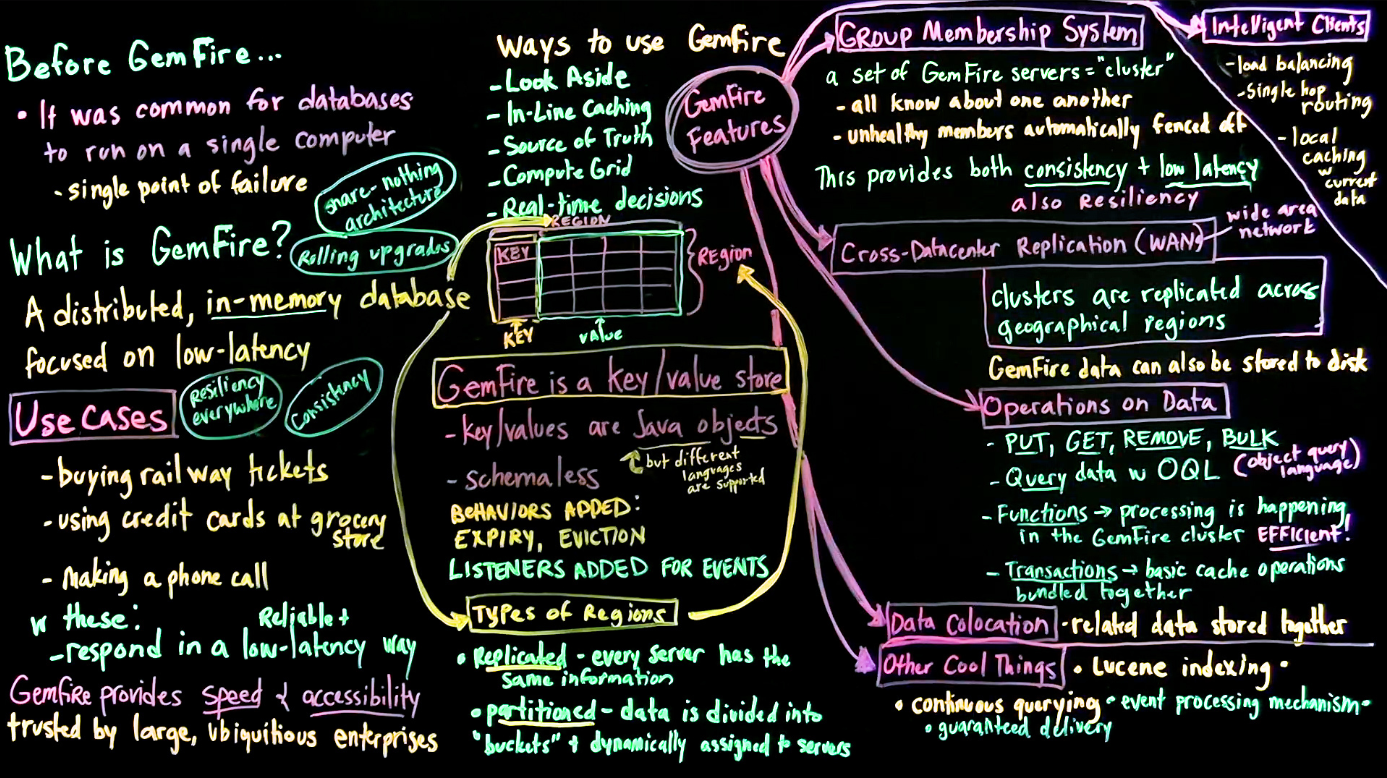 Before GemFire...
• It was common for databases
to run on a single computer
- single point of failure
share-nothing
architecture
What is GemFire?
Rolling upgrades
A distributed, in-memory database
focused on low-latency
Use Cases
Resiliency
everywhere
Consistency
- buying railway tickets
- using credit cards at grocery
store
- Making a phone call
w these:
Reliable +
- respond in a low-latency way
GemFire provides speed & accessibility
trusted by large, ubiquitious enterprises
Ways to use Gemfire
- Look Aside
- In-Line Caching
- Source of Truth
- Compute Grid
- Real-time decisions
REGION
KEY
REgion
KEY
value
GemFire is a key/value store
- key/values are Java objects
but different
languages
are supported
- schemaless
BEHAVIORS ADDED:
EXPIRY, EVICTION
LISTENERS ADDED FOR EVENTS
Types of Regions
• Replicated - every server has the
same information
• partitioned - data is divided into
"buckets" + dynamically assigned to servers
GemFire
Features
Group Membership System
a set of GemFire servers = "cluster"
- all know about one another
- unhealthy members automatically fenced off
This provides both consistency + low latency
also Resiliency
Intelligent Clients
- load balancing
- single hop
routing
- local
caching
w current
data
Cross-Datacenter Replication (WAN)
wide area
network
clusters are replicated across
geographical regions
GemFire data can also be stored to disk
Operations on Data
- PUT, GET, REMOVE, BULK
- Query data w OQL (object query
language)
- Functions → processing is happening
in the GemFire cluster EFFICIENT!
- Transactions → basic cache operations
bundled together
Data Colocation - related data stored together
Other Cool Things • Lucene indexing •
• continuous querying • event processing mechanism •
• guaranteed delivery